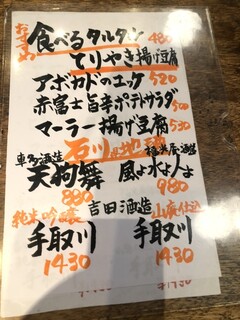 おすすめ
食べるタルタル 480
てりやき揚げ豆腐
アボカドのユッケ 520
赤富士旨辛ポテトサラダ 500
マーラー揚げ豆腐 530
石川の地酒
車多酒造 福光屋酒造
天狗舞 風よ水よ人よ
880 980
純米吟醸 吉田酒造 山廃仕込
手取川 手取川
1430 1430